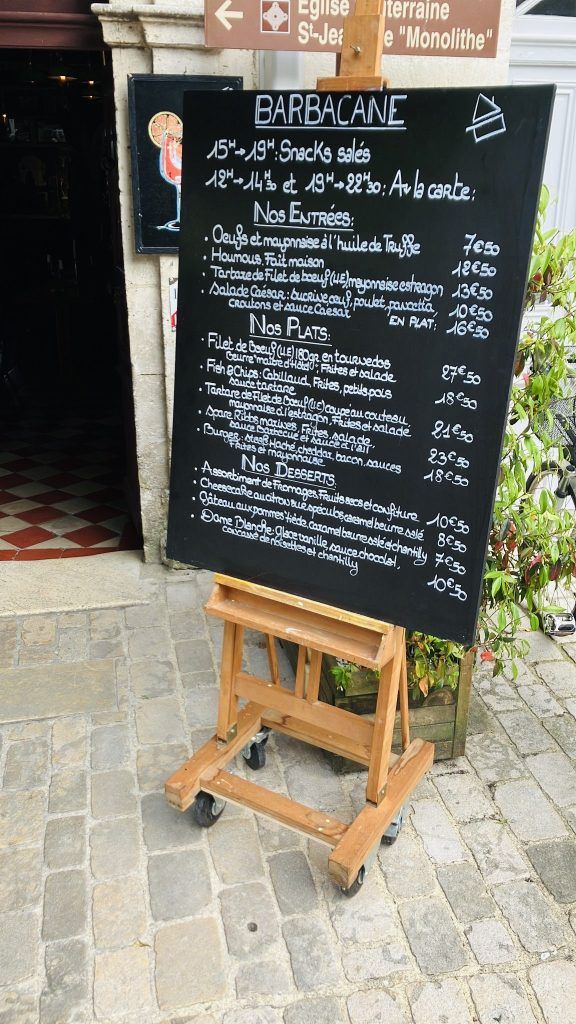 Eglise outerraine
St-Jea "Monolithe"
BARBACANE
15H→19H: Snacks salés
12H→14H30 et 19H→22H30: A la carte:
NOS ENTRÉES:
• Oeufs et mayonnaise à l'huile de Truffe 7€50
• Houmous Fait maison 12€50
• Tartare de Filet de boeuf (UE) mayonnaise estragon 13€50
• Salade Caesar: sucrine, oeuf, poulet, pancetta, 10€50
croutons et sauce Caesar EN PLAT: 16€50
NOS PLATS:
• Filet de Boeuf (UE) 180gr en tournedos
Beurre "maître d'Hôtel", Frites et salade 27€50
• Fish & Chips: Cabillaud, Frites, petits pois
sauce tartare 18€50
• Tartare de Filet de Boeuf (UE) coupé au couteau
mayonnaise à l'estragon, Frites et salade 21€50
• Spare Ribbs marinés, Frites, salade,
sauce Barbecue et sauce à l'ail 23€50
• Burger: Haché, cheddar, bacon, sauces 18€50
Frites et mayonnaise
NOS DESSERTS
• Assortiment de Fromages, Fruits secs et confiture 10€50
• Cheesecake au citron sur spéculos, caramel beurre salé 8€50
• Gâteau aux pommes tiède, caramel beurre salé et chantilly 7€50
• Dame Blanche: glace vanille, sauce chocolat, 10€50
concassé de noisettes et chantilly